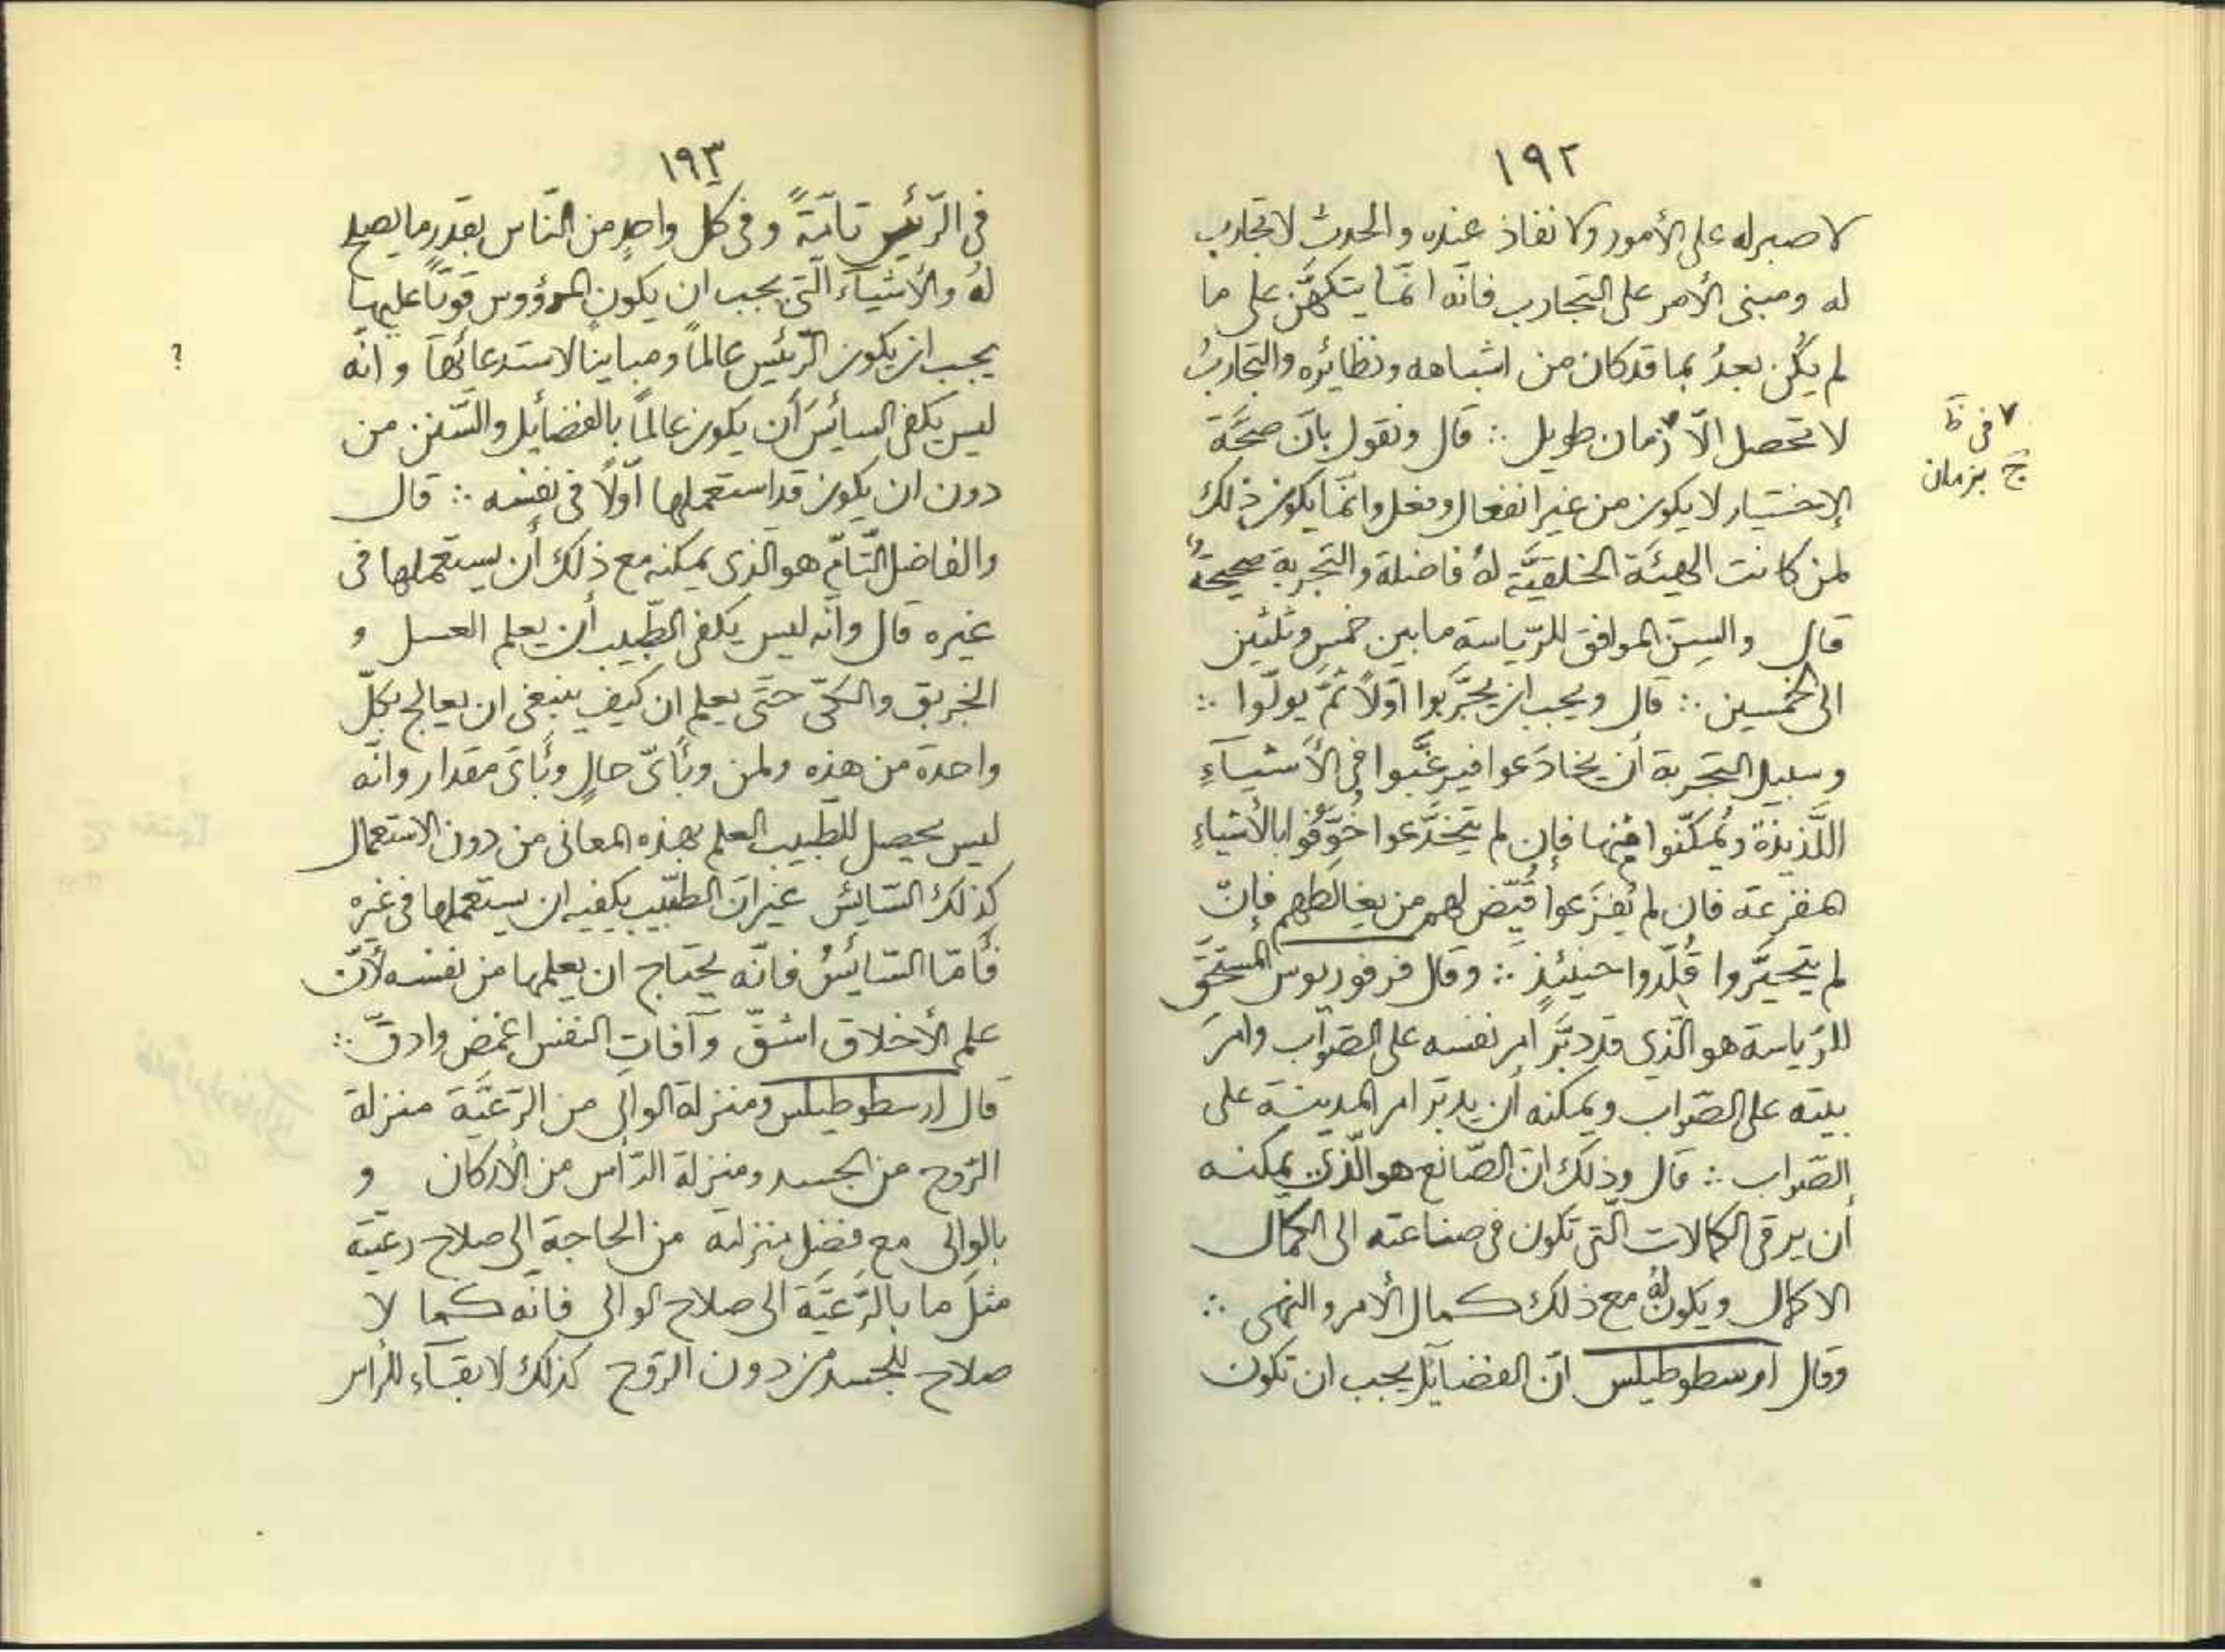 ١٩٢
لا صبر له على الأمور ولا نفاذ عنده والحدث لا تجارب
له ومبنى الأمر على التجارب فانّه انّما يتكهَّن على ما
لم يكُن بعدُ بما قد كان من اشباهه ونظائره والتجاربُ
لا تحصل الّا ٧ زمان طويل ∴ قال ونقول بانّ صحَّة
٧ فى ظ
ج بزمان
الإختيار لا يكون من غير انفعال وفعل وانّما يكون ذلك
لمن كانت الهيئة الخلقيَّة لهُ فاضلة والتجربة صحيحةً
قال والسِنّ الموافق للرّياسة ما بين خمسٍ وثلثين
الى الخمسين ∴ قال ويجب ان يجرَّبوا اوّلاً ثمَّ يولّوا ∴
وسبيل التجربة أن يخادَعوا فيرغَّبوا فى الأشياءِ
اللَّذيذة ويُمكّنوا منها فإن لم يتخدَّعوا خُوِّفوا بالأشياءِ
المفزعة فان لم يُفزَعوا قُيّض لهم من يغالطهم فإنّ
لم يتحيَّروا قُلّدوا حينئذٍ ∴ وقال فرفوريوس المستحَقّ
للرّياسة هو الّذي قد دبَّر امر نفسه على الصّواب وامرَ
بيته على الصّواب ويمكنه أن يدبّر امر المدينة على
الصّواب ∴ قال وذلك انّ الصّانع هو الّذى يمكنه
أن يرقى الكمالات الّتى تكون فى صناعته الى الكمال
الاكمال ويكون لهُ مع ذلك كمال الأمر والنهى ∴
وقال ارسطوطيلس انّ الفضآيل يجب ان تكون
١٩٣
فى الرّئيس تامّةً وفى كل واحدٍ من النّاس بقدرِ ما يصلح
لهُ والأشيآء الّتى يجب ان يكون المرؤوس قويّاً عليها
يجب ان يكون الرّئيس عالماً ومباينا لاستدعائها وانّه
?
ليس يكفى السائسَ أن يكون عالماً بالفضآيل والسّنن من
دون ان يكون قد استعملها اوّلاً فى نفسه ∴ قال
والفاضل التّامّ هو الّذى يمكنه مع ذلك أن يستعملها فى
غيره قال وانّه ليس يكفى الطّبيب أن يعلم العسل و
الخربق والكىّ حتّى يعلم ان كيف ينبغى ان يعالج بكلّ
واحدة من هذه ولمن وبأىّ حالٍ وبأىّ مقدار وانّه
ليس يحصل للطّبيب العلم بهذه المعانى من دون الاستعمال
كذلك السّايس غير انّ الطّبيب يكفيه ان يستعملها فى غيره
فأمّا السّائسُ فانّه يحتاج ان يعلمها من نفسه لأنّ
علم الأخلاق اشقّ وآفات النفس اغمض وادقّ ∴
قال ارسطوطيلس ومنزلة الوالى من الرّعيَّة منزلة
الرّوح من الجسد ومنزلة الرّأس من الأركان و
بالوالى مع فضل منزلته من الحاجة الى صلاح رعيّته
مثلَ ما بالرّعيَّة الى صلاح الوالى فانّه كما لا
صلاح للجسد من دون الرّوح كذلك لا بقآء للرأس